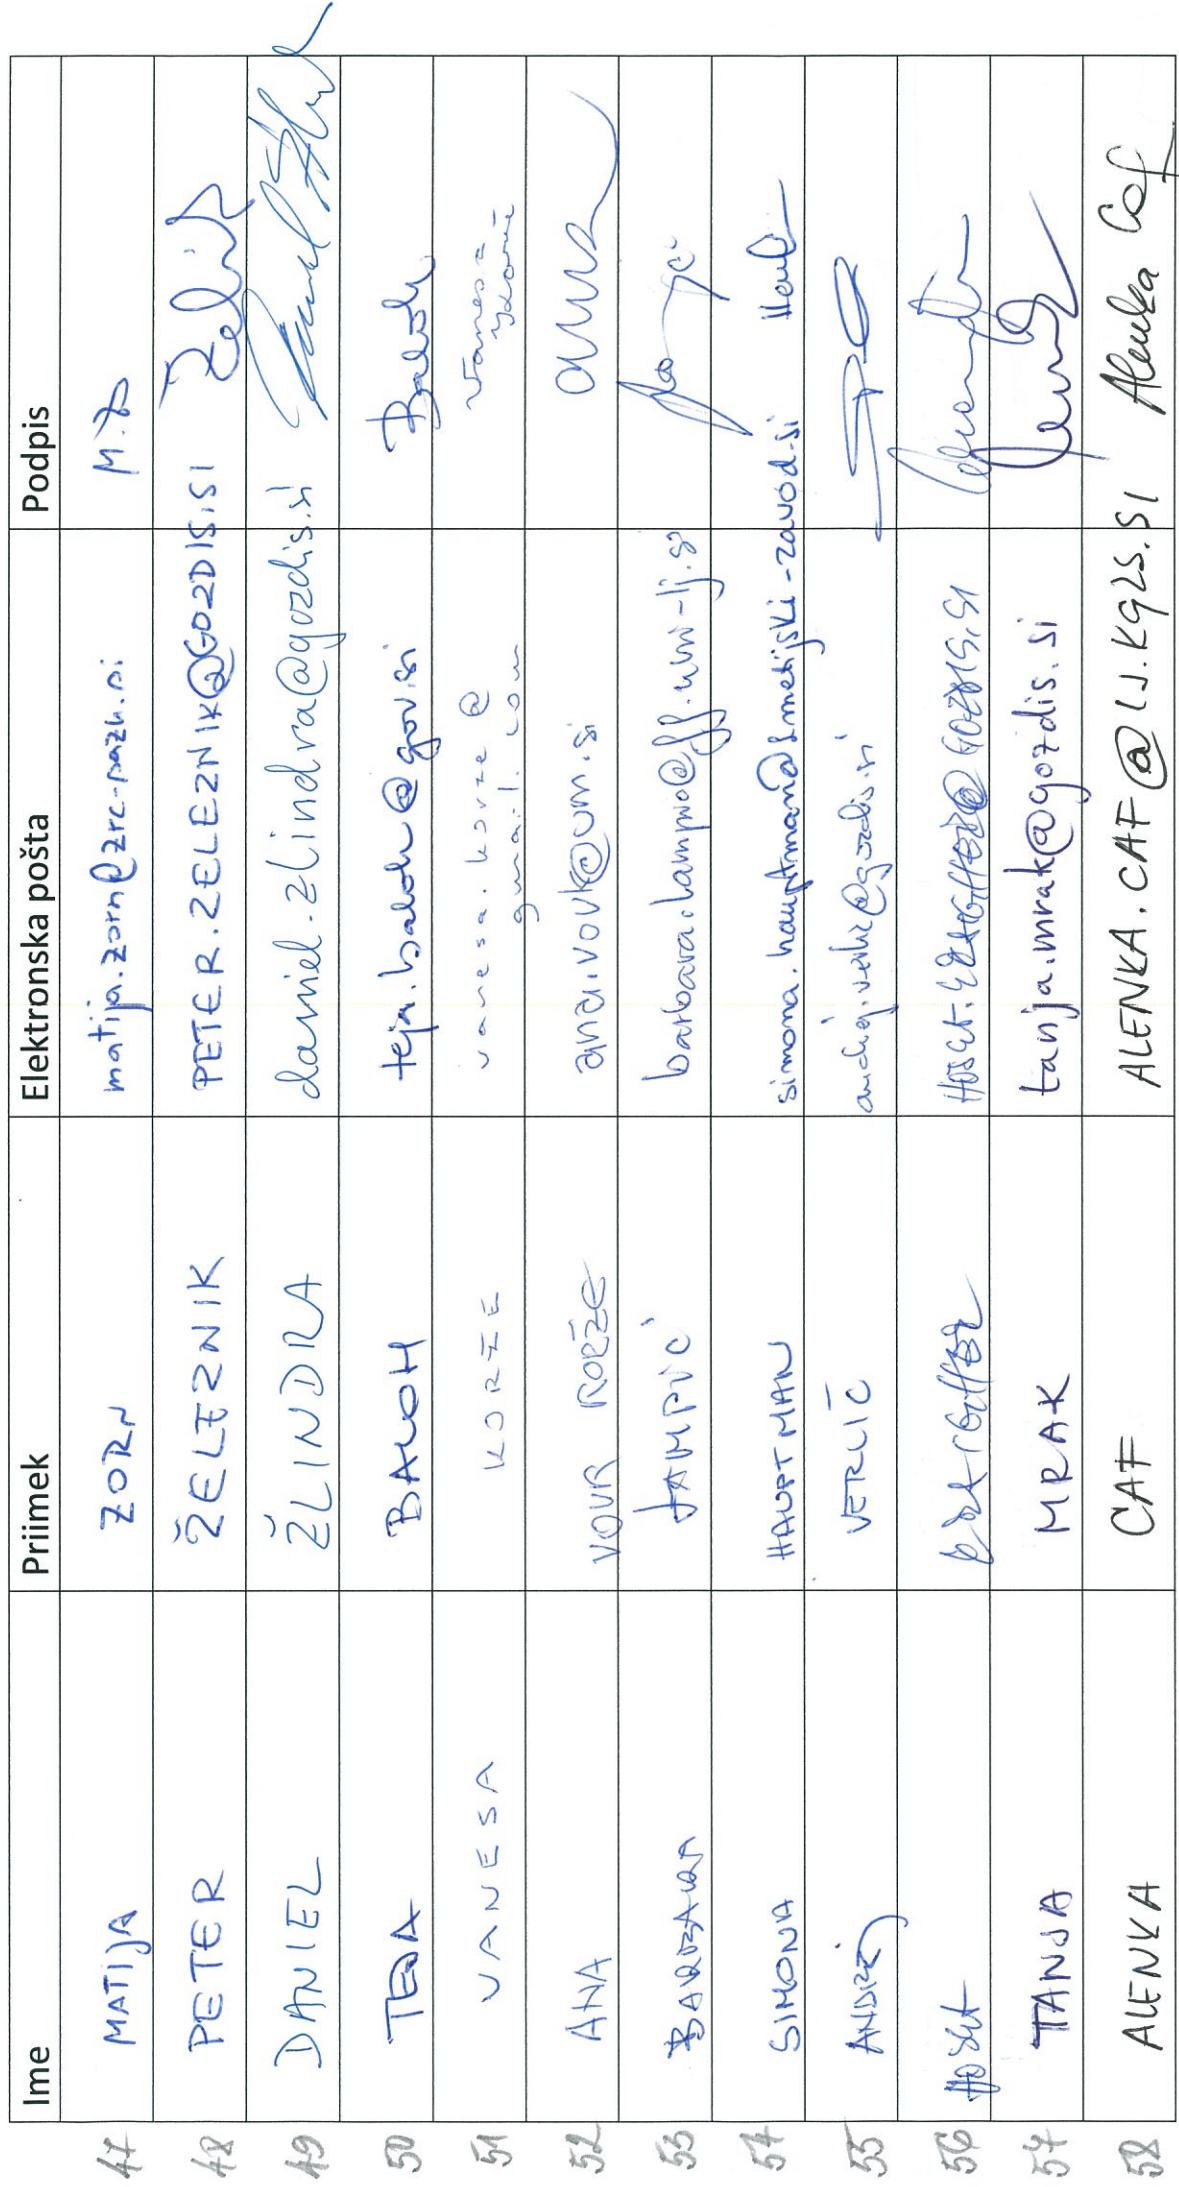 Ime Priimek Elektronska pošta Podpis
47 MATIJA ZORN matija.zorn@zrc-sazu.si M.Z
48 PETER ŽELEZNIK PETER.ZELEZNIK@GOZDIS.SI
49 DANIEL ŽLINDRA daniel.zlindra@gozdis.si
50 TEJA BALOH teja.baloh@gov.si Baloh
51 VANESA KORŽE vanesa.korze@
gmail.com
Vanesa
Korže
52 ANA VOVK KORŽE ana.vovk@um.si
53 BARBARA LAMPIČ barbara.lampic@ff.uni-lj.si
54 SIMONA HAUPTMAN simona.hauptman@kmetijski-zavod.si
55 ANDREJ VERLIČ andrej.verlic@gozdis.si
56
57 TANJA MRAK tanja.mrak@gozdis.si
58 ALENKA CAF ALENKA.CAF@LJ.KGZS.SI Alenka Caf